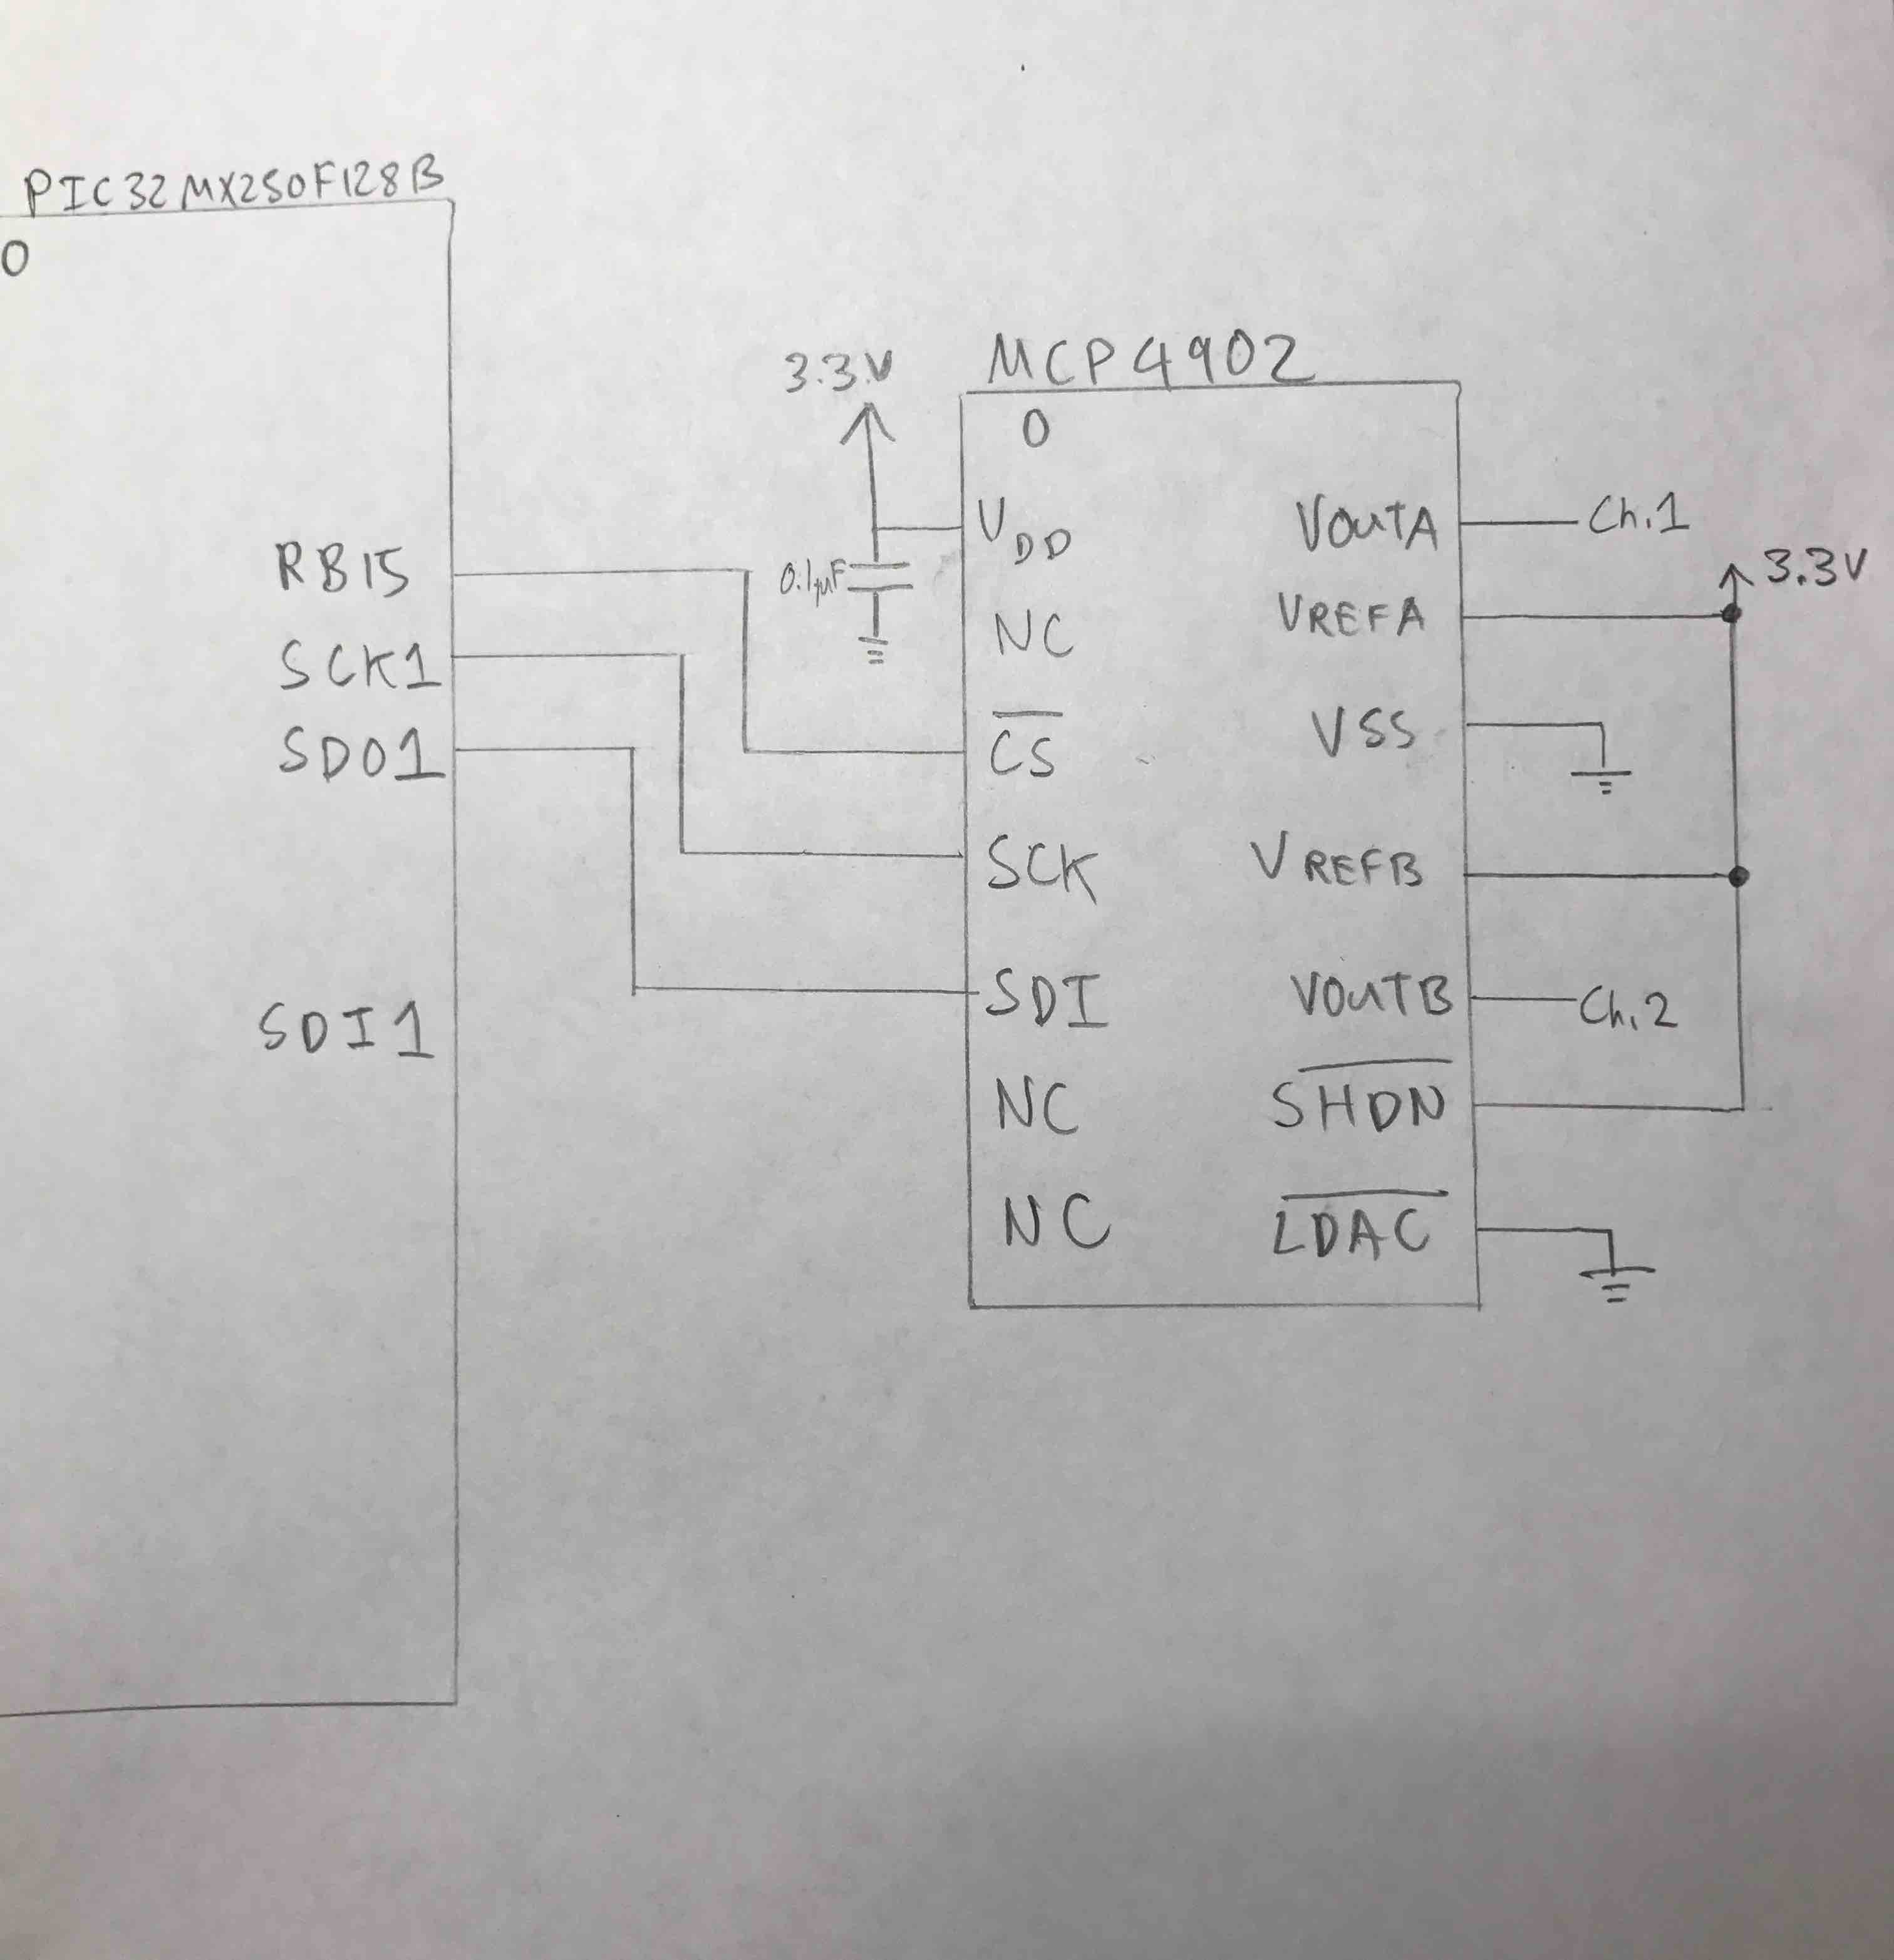 PIC32MX250F128B
O
RB15
SCK1
SDO1
SDI1
3.3V
0.1µF
MCP4902
O
VDD
NC
CS
SCK
SDI
NC
NC
VOUTA
VREFA
VSS
VREFB
VOUTB
SHDN
LDAC
Ch.1
3.3V
Ch.2